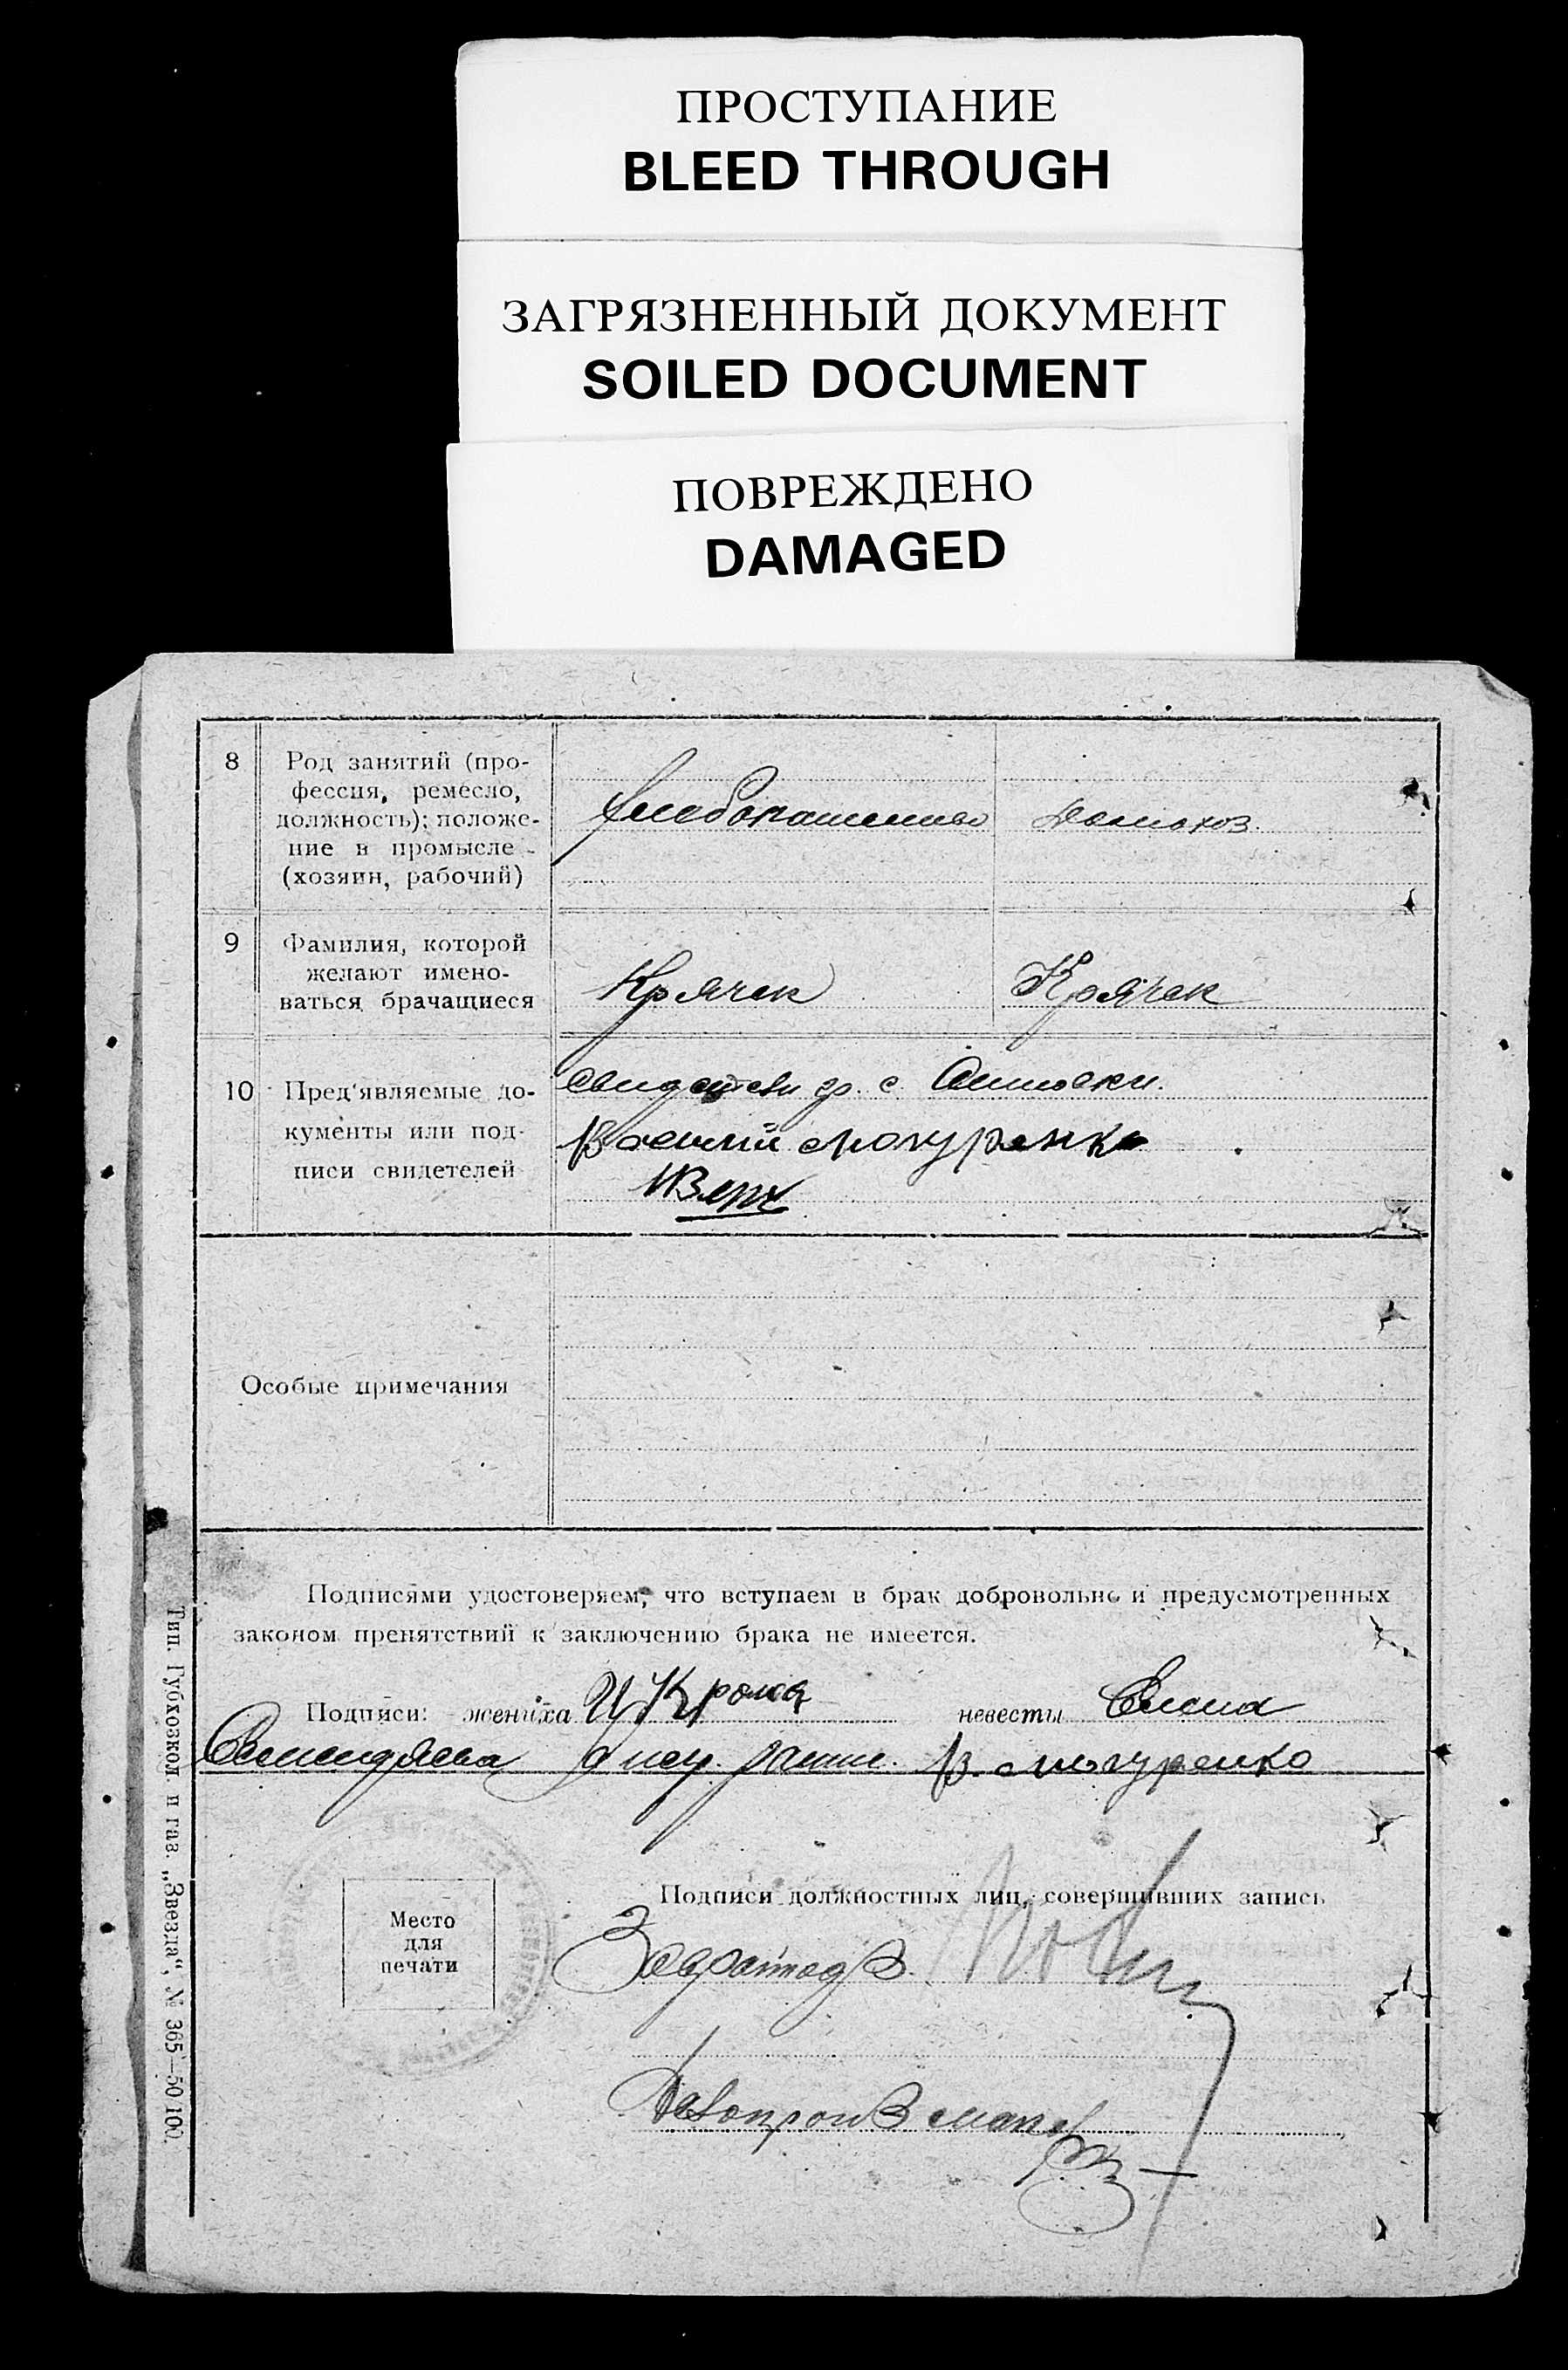 ПРОСТУПАНИЕ
BLEED THROUGH
ЗАГРЯЗНЕННЫЙ ДОКУМЕНТ
SOILED DOCUMENT
ПОВРЕЖДЕНО
DAMAGED
8 Род занятий (про-
фессия, ремесло,
должность); положе-
ние в промысле
(хозяин, рабочий)
Хлебопашество
Домохоз.
9 Фамилия, которой
желают имено-
ваться брачащиеся
Крячек
Крячек
10 Пред'являемые до-
кументы или под-
писи свидетелей
с.
Особые примечания
Подписями удостоверяем, что вступаем в брак добровольно и предусмотренных
законом препятствий к заключению брака не имеется.
Подписи: жениха невесты Елена
В.
Место
для
печати
Подписи должностных лиц, совершивших запись
Тип. Губхозкол. и газ. „Звезда", № 365—50 100.